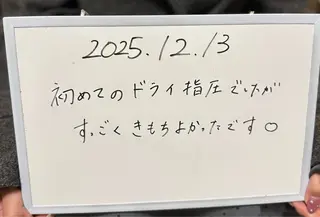 2025.12.13
初めてのドライ指圧でしたが
すごくきもちよかったです。